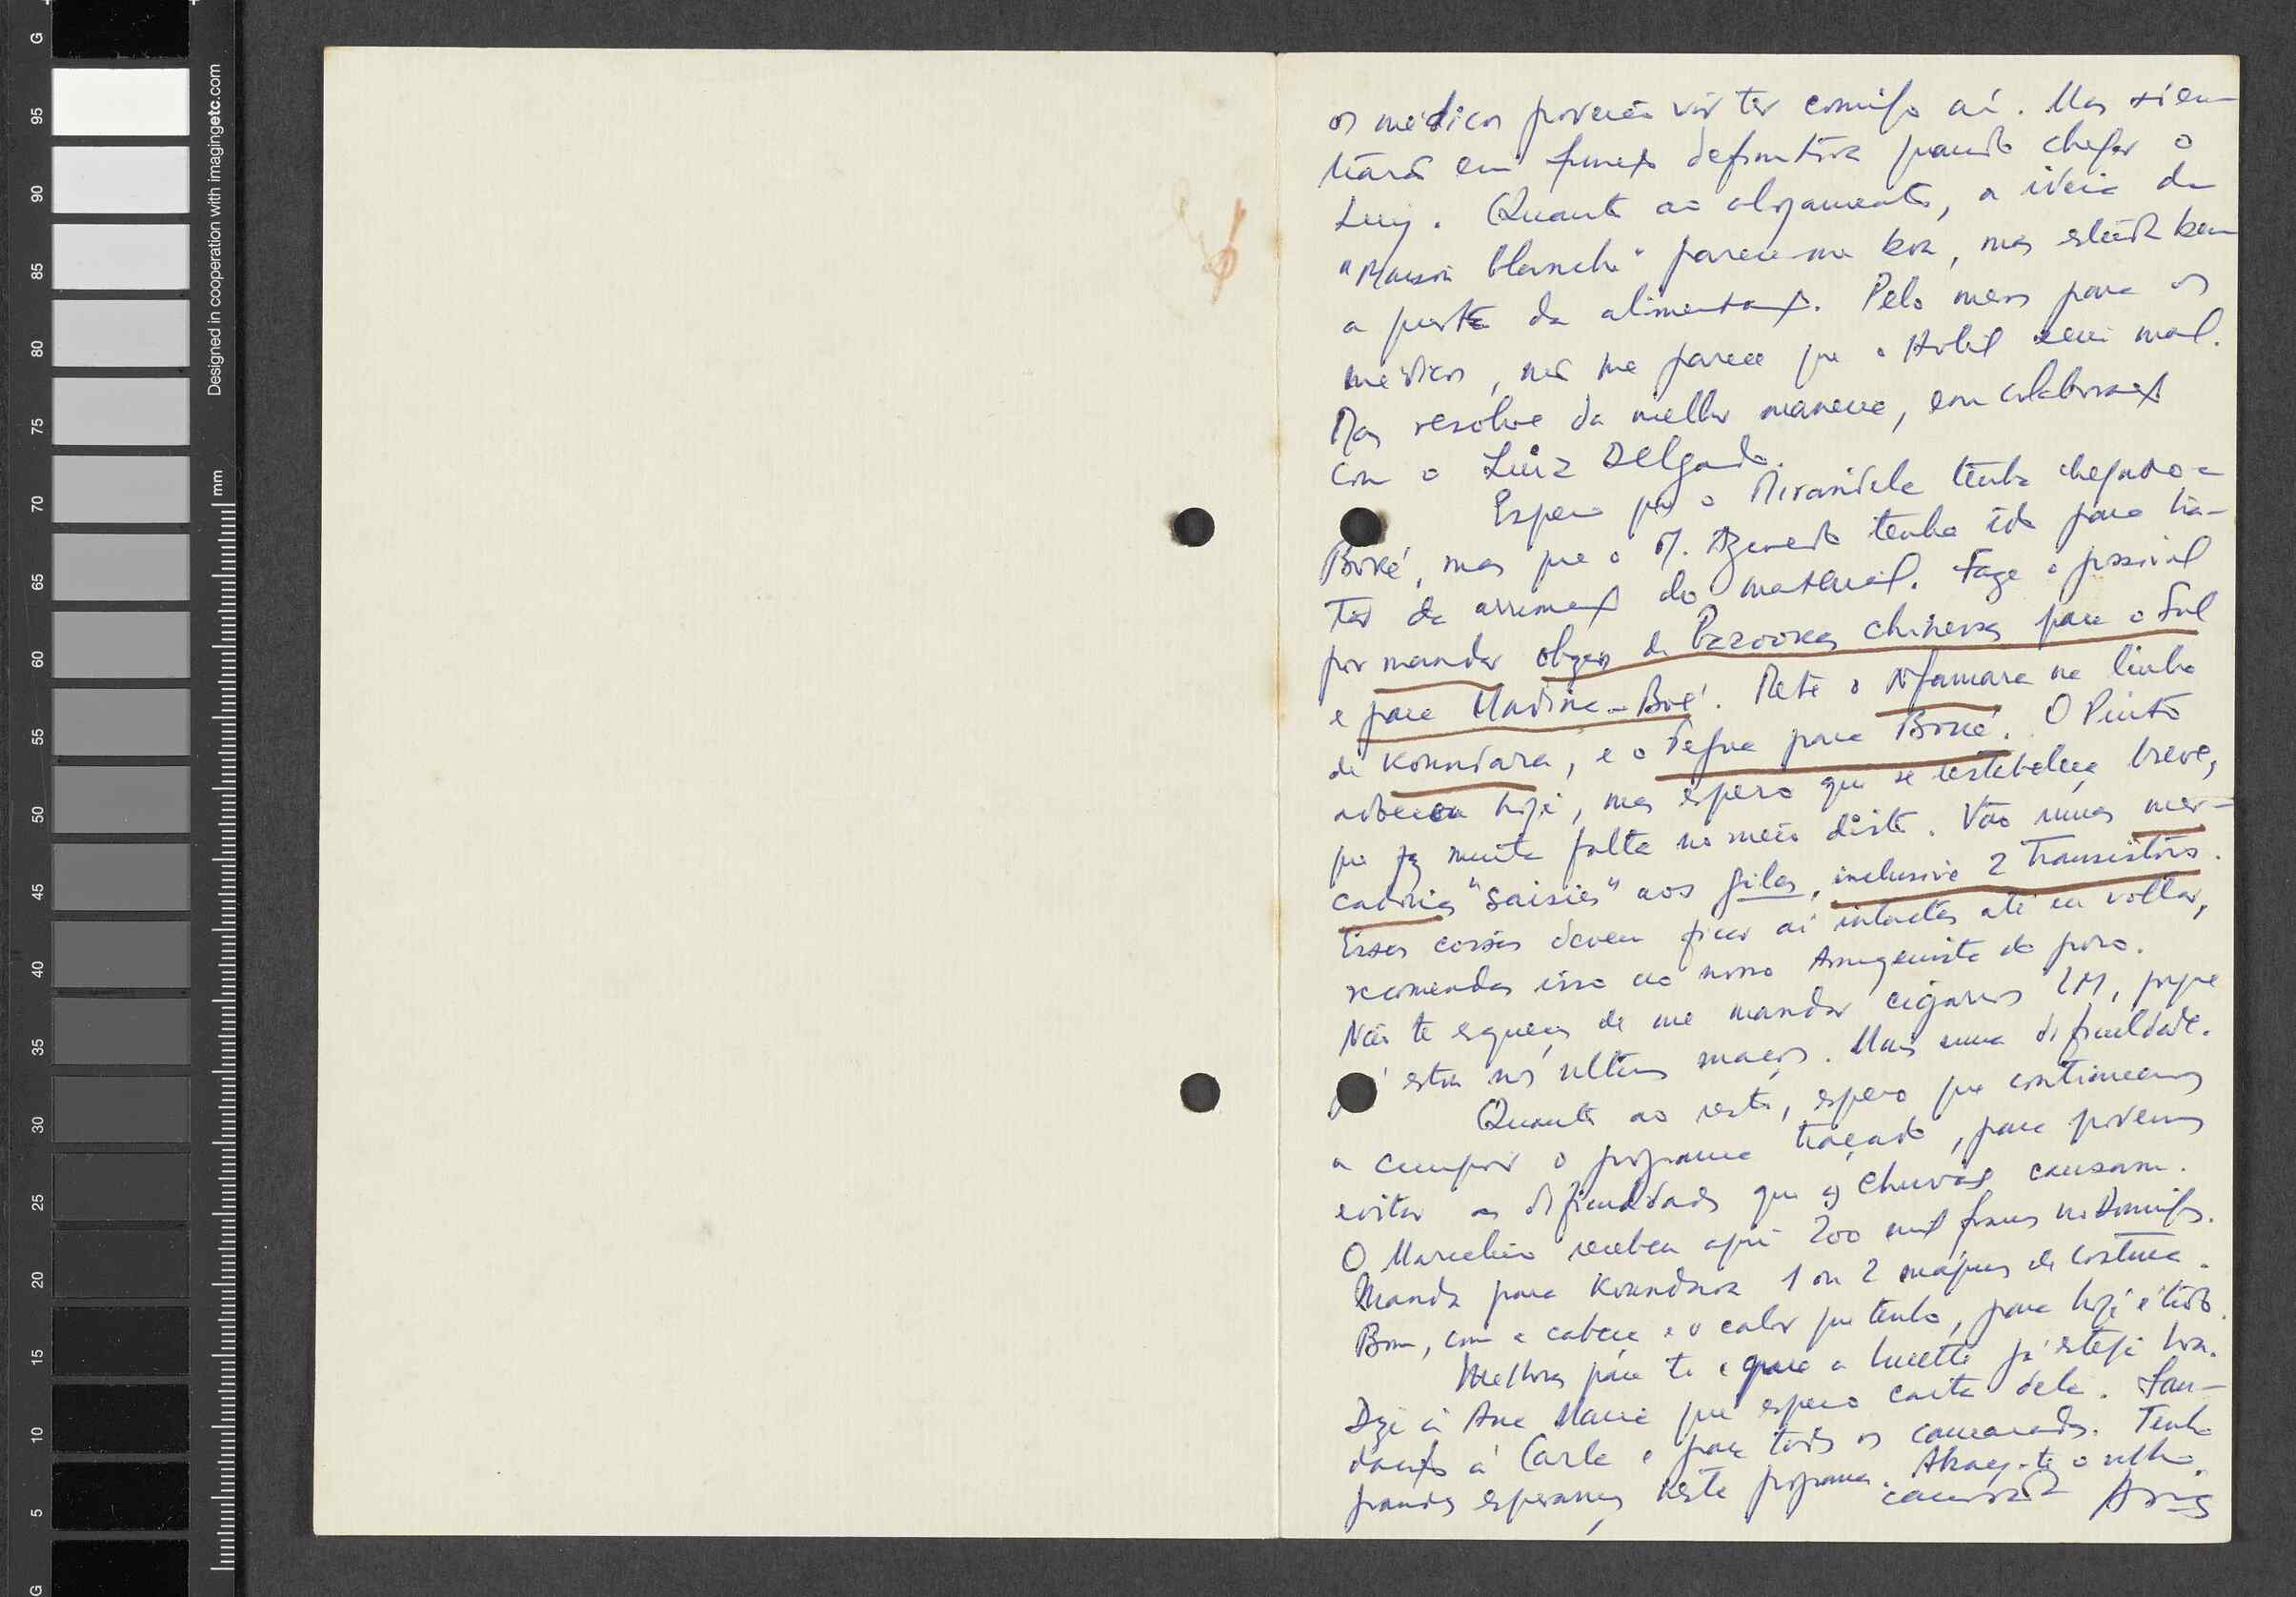 G
95
90
85
80
75
70
65
60
55
50
45
40
35
30
25
20
15
10
5
G
Designed in cooperation with imagingetc.com
mm
os médicos poderão vir ter comigo aí. Mas
em função definitiva quando chegar o
Luiz. Quanto ao alojamento, a ideia da
"Maison blanche" parece-me boa, mas estuda bem
a questão da alimentação. Pelo menos para os
médicos, não me parece que o Hotel seria mal.
Mas resolve da melhor maneira, em colaboração
com o Luiz Delgado.
Espero que o Mirandela tenha chegado a
Boké, mas que o M. Azevedo tenha ido para tra-
tar da arrumação do material. Faze o possível
por mandar obuses de Bazookas chinesas para o Sul
e para Madina-Boé. Mete o N'famara na linha
de Koundara, e o Degue para Boké. O Pinto
adoeceu hoje, mas espero que se restabeleça breve,
que faz muita falta no meio disto. Vão umas mer-
cadorias "saisies" aos filos, inclusivé 2 transistors.
Essas coisas devem ficar aí intactas até eu voltar,
recomendas isso ao nosso do povo.
Não te esqueças de me mandar cigarros LM, porque
já estou nos últimos maços. Mais uma dificuldade.
Quanto ao resto, espero que continuemos
a cumprir o programa traçado, para podermos
evitar as dificuldades que as chuvas causam.
O Marcelino recebeu aqui 200 mil francos no Domingo.
Manda para Koundara 1 ou 2 máquinas de costura.
Bom, com a cabeça e o calor que tenho, para hoje é tudo.
Melhoras para ti e que a Lucette já esteja boa.
Dize à Ana Maria que espero carta dela. Sau-
dações à Carla e para todos os camaradas. Tenho
grandes esperanças neste programa. Abraça-te o velho
camarada